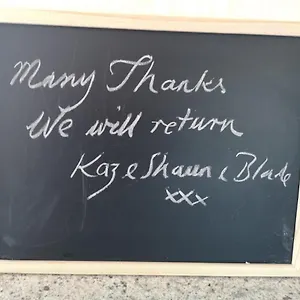 Many Thanks
We will return
Kaz & Shaun & Blade
xxx